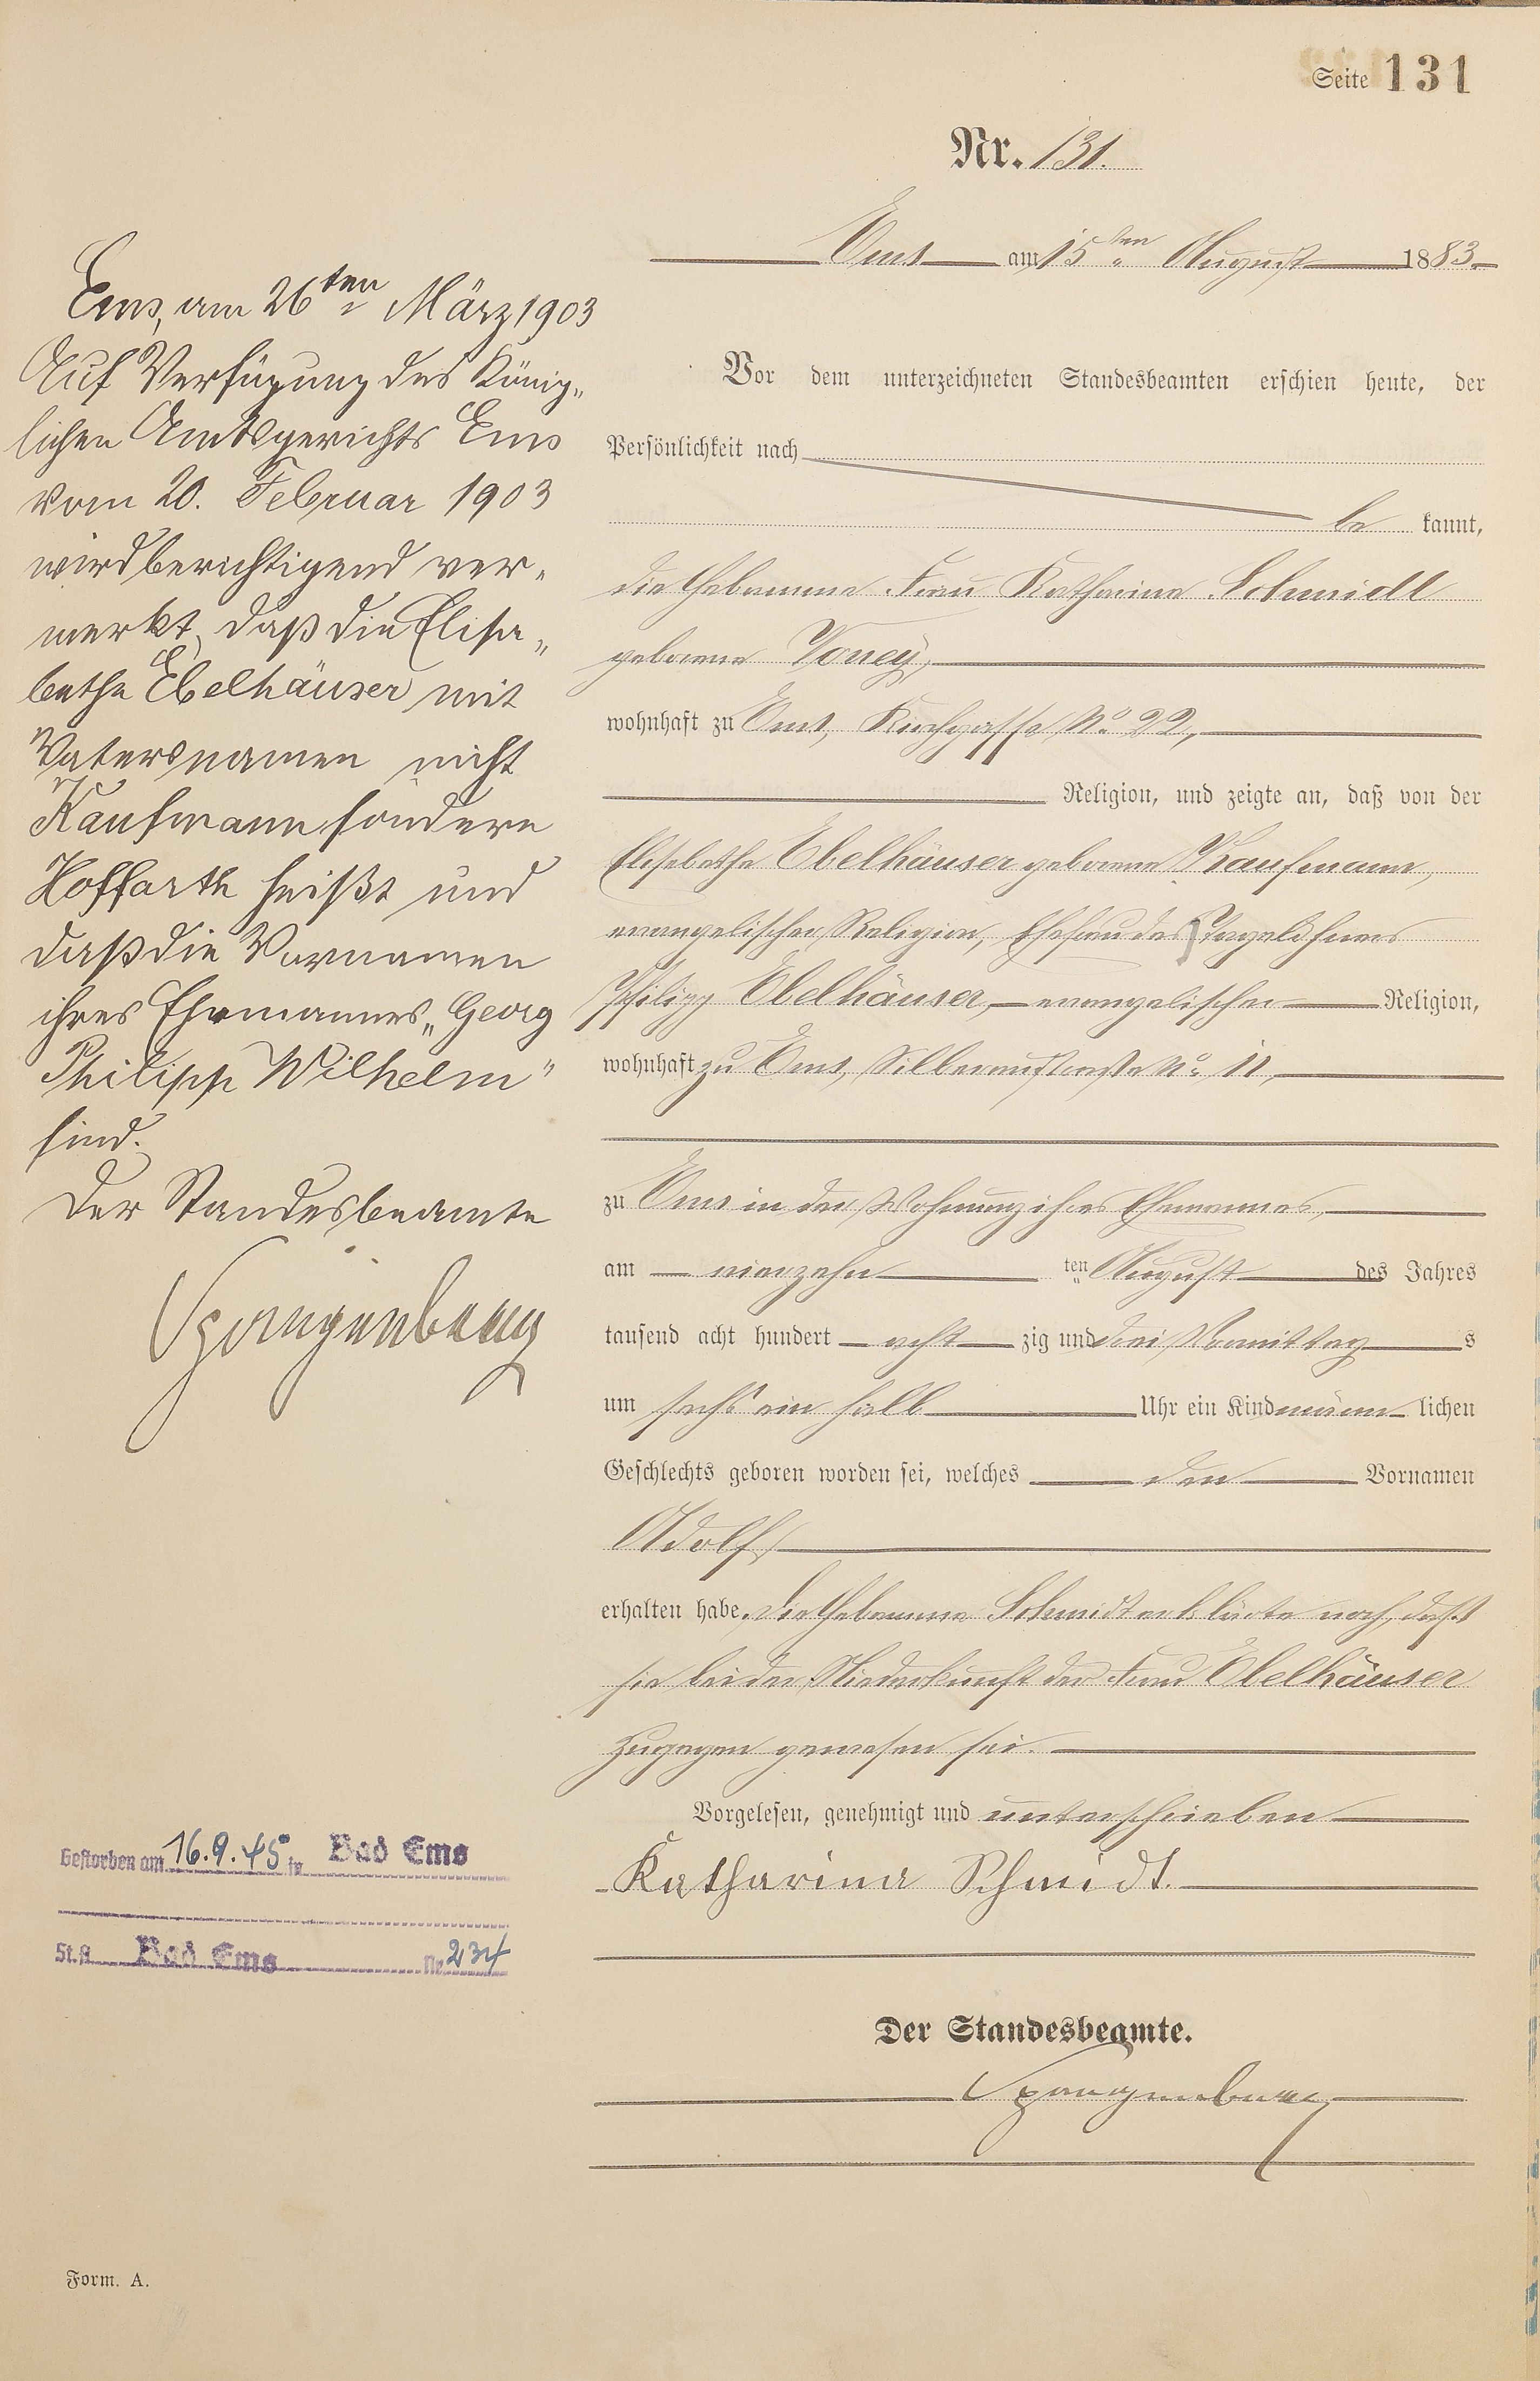 Seite 131
Nr. 131.
Ems am 15ten August 1883.
Vor dem unterzeichneten Standesbeamten erschien heute, der
Persönlichkeit nach
be kannt,
die Hebamme Frau Katharina Schmidt
geborene Vorney,
wohnhaft zu Ems, Kirchgasse No 22,
Religion, und zeigte an, daß von der
Elisabethe Ebelhäuser geborene Kaufmann,
evangelischer Religion, Ehefrau des Tagelöhners
Philipp Ebelhäuser, evangelischer Religion,
wohnhaft zu Ems, Silberaustraße No 11,
zu Ems in der Wohnung ihres Ehemannes,
am vierzehn ten August des Jahres
tausend acht hundert acht zig und drei Vormittag s
um sechs ein halb Uhr ein Kind männ lichen
Geschlechts geboren worden sei, welches den Vornamen
Adolf
erhalten habe. Die Hebamme Schmidt erklärte noch, daß
sie bei der Niederkunft der Frau Ebelhäuser
zugegen gewesen sei.
Vorgelesen, genehmigt und unterschrieben
Katharina Schmidt.
Der Standesbeamte.
Spangenberg
Ems, am 26ten März 1903
Auf Verfügung des König„
lichen Amtsgerichts Ems
vom 20. Februar 1903
wird berichtigend ver„
merkt, daß die Elisa„
bethe Ebelhäuser mit
Vatersnamen nicht
Kaufmann sondern
Hoffarth heißt und
daß die Vornamen
ihres Ehemannes „Georg
Philipp Wilhelm"
sind.
Der Standesbeamte
Spangenberg
Gestorben am 16.9.45 in Bad Ems
St.A. Bad Ems Nr. 234
Form. A.